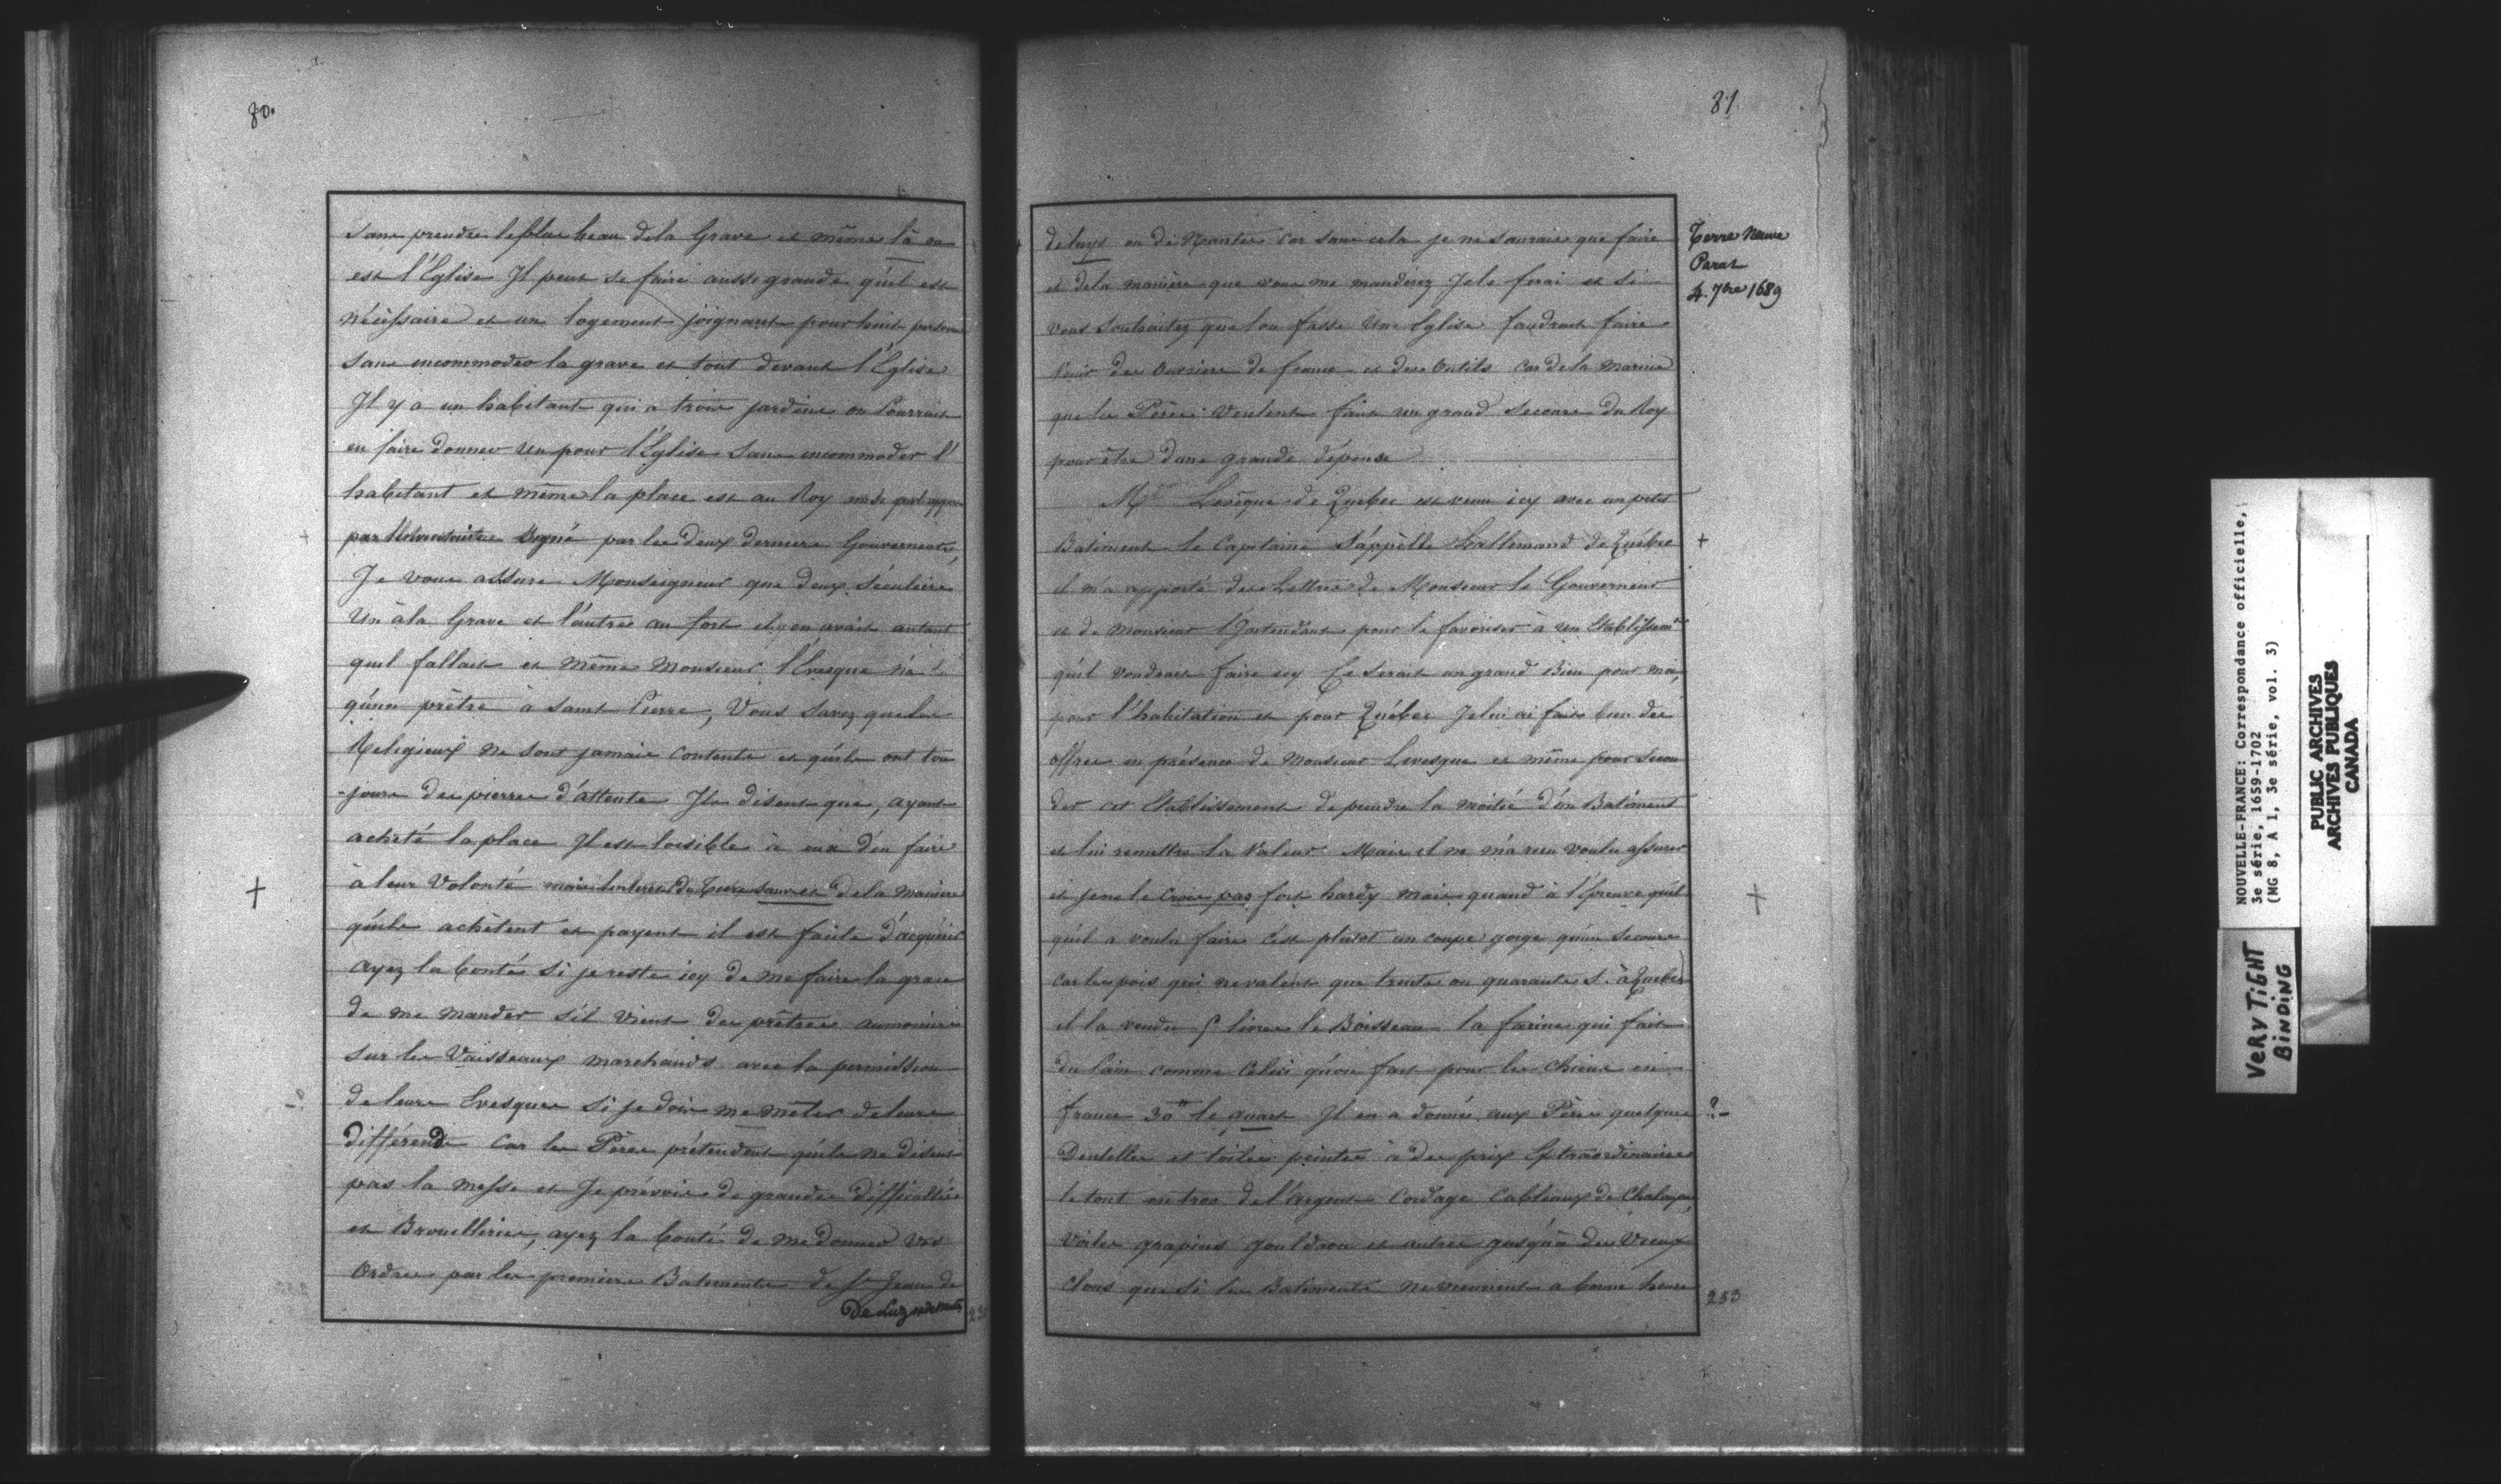 80.
sans prendre le plus beau dela Grave et même là ou
est l'Eglise Il peut se faire aussi grande qu'il est
nécéssaire et un logement joignant pour huit personnes
sans incommoder la grave et tout devant l'Eglise
Il y a un habitant qui a trois jardins on Pourrait
en faire donner un pour l'Eglise sans incommoder l'
habitant et même la place est au Roy
par signé par les deux derniers Gouverneurs,
Je vous assure Monseigneur que deux séculiers
Un à la Grave et l'autre au fort il y en avait autant
quil fallait et même Monsieur l'Evesque n'a
qu'un prêtre à Saint Pierre, Vous savez que les
Religieux ne sont jamais contents et qu'ils ont tou
-jours des pierres d'attente Ils disent que, ayant
acheté la place Il est loisible à eux d'en faire
à leur Volonté mais dela manière
qu'ils achètent et payent il est facile d'acquérir
ayez la bonté si je reste icy de me faire la grace
de me mander s'il vient des prêtres aumoniers
sur les Vaisseaux marchands avec la permission
de leurs Evesques si je dois me mêler de leurs
différends car les Pères prétendent qu'ils ne disent
pas la messe et Je prévois de grandes difficultés
et Brouilleries, ayez la bonté de me donner vos
Ordres par les premiers Batiments de St Jean de
De Luz
81.
Terre Neuve
Parat
4. 7bre 1689
de luys ou de Nantes car sans cela je ne saurais que faire
et dela manière que vous me manderez Je le ferai et si
vous souhaitez que lon fasse Une Eglise faudrait faire
venir des Ouvriers de france et des Outils car de la manière
que les Pères Veulent faut un grand secours du Roy
pour être dune grande dépense
Mr Levêque de Quebec est venu icy avec un petit
Batiment le Capitaine s'appèlle Lallemand de Québec
il m'a apporté des Lettres de Monsieur le Gouverneur
et de Monsieur l'Intendant pour le favoriser à un Etablissemt
qu'il voudrait faire icy Ce serait un grand Bien pour moi,
pour l'habitation et pour Québec Je lui ai fait bien des
offres en présence de Monsieur Levesque et même pour secon
der cet Etablissement de prendre la moitié d'un Batiment
et lui remettre la Valeur. Mais il ne m'a rien voulu assurer
et je ne le crois pas fort hardy mais quand à l'épreuve qu'il
qu'il a voulu faire c'est plutot un coupe gorge qu'un secours
car les pois qui ne valent que trente ou quarante s. à Quebec
il la vendu livres le Boisseau la farine qui fait
du Pain comme Celui qu'on fait pour les Chiens en
france 30tt le quart Il en a donné aux Pères quelques
Dentelles et toiles peintes à des prix Extraordinaires
le tout de l'Argent Cordage Cableaux de Chaloupes,
Voiles grapins gouldron et autres jusqu'à des Vieux
Clous que si les Batiments ne viennent a bonne heure
?-
253
NOUVELLE-FRANCE: Correspondance officielle,
3e série, 1659-1702
(MG 8, A 1, 3e série, vol. 3)
PUBLIC ARCHIVES
ARCHIVES PUBLIQUES
CANADA
VERY TIGHT
BINDING